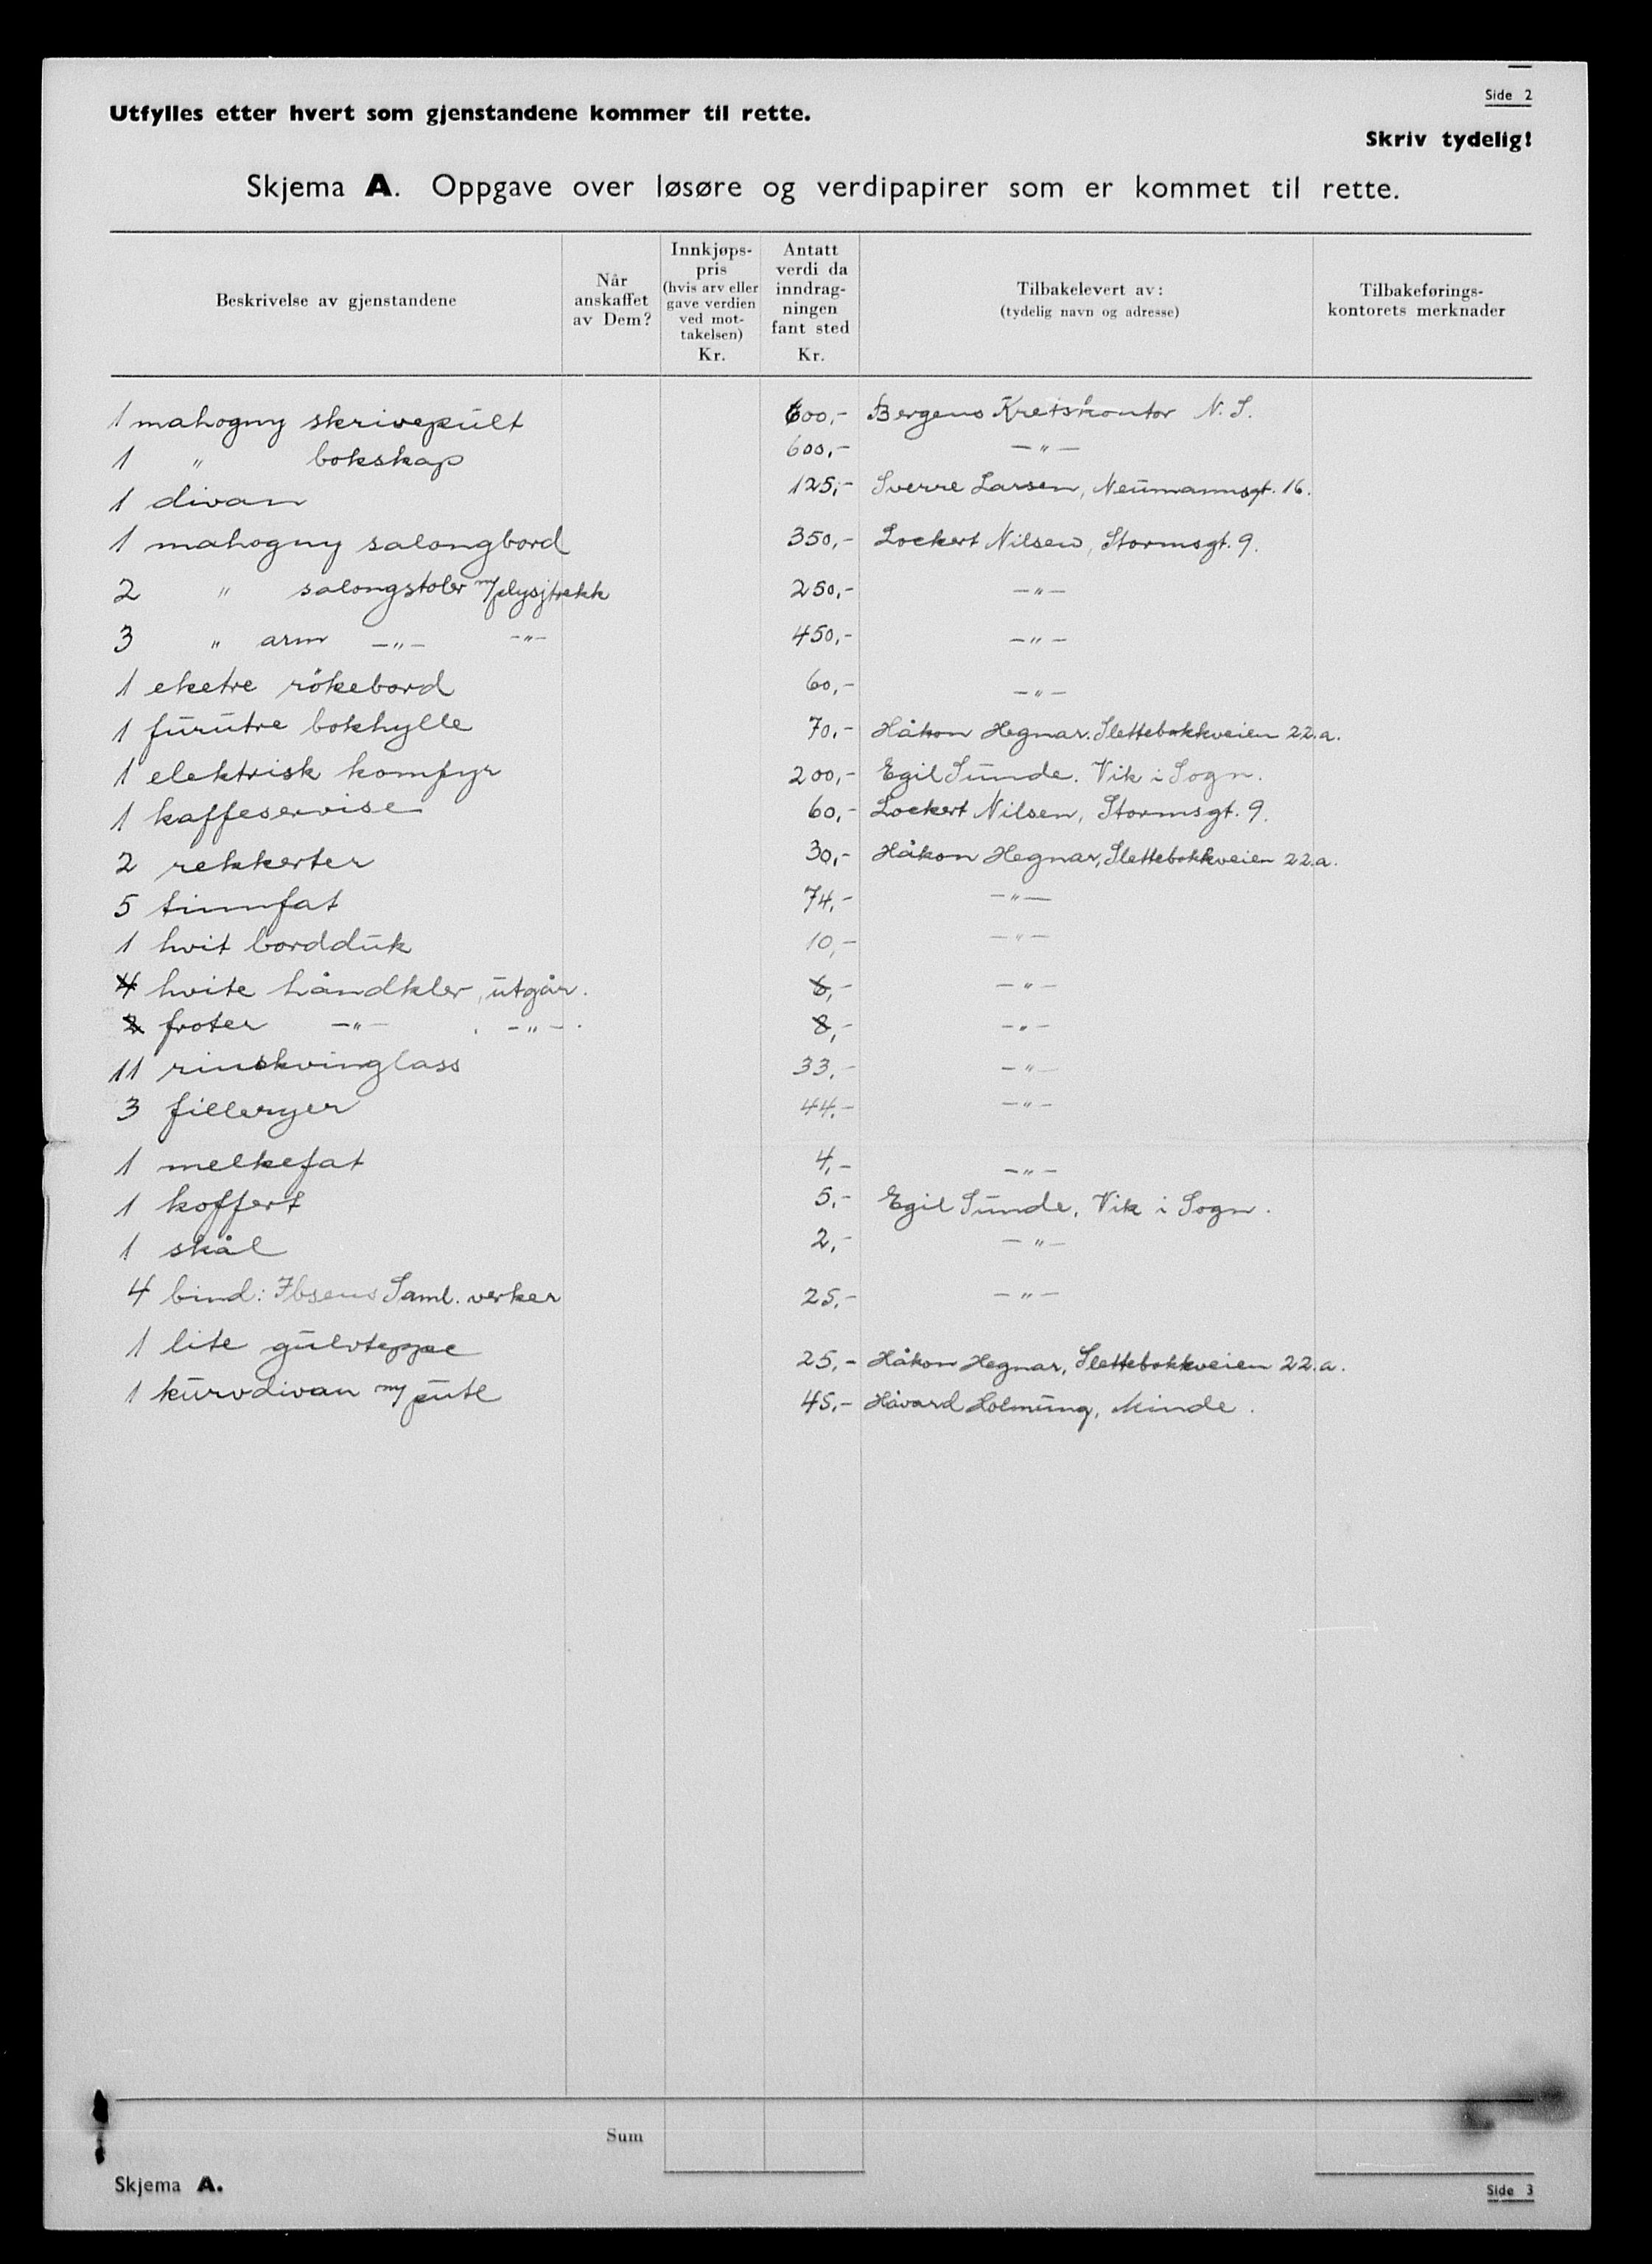 Side 2
Utfylles etter hvert som gjenstandene kommer til rette.
Skriv tydelig!
Skjema A. Oppgave over løsøre og verdipapirer som er kommet til rette.
Beskrivelse av gjenstandene
Når anskaffet av Dem?
Innkjøps-pris (hvis arv eller gave verdien ved mot-takelsen) Kr.
Antatt verdi da inndrag-ningen fant sted Kr.
Tilbakelevert av: (tydelig navn og adresse)
Tilbakeførings-kontorets merknader
1 mahogny skrivepult 600,- Bergens Kretskontor N. S.
1 " bokskap 600,- -"-
1 divan 125,- Sverre Larsen, Neumannsgt. 16.
1 mahogny salongbord 350,- Lockert Nilsen, Stormsgt. 9.
2 " salongstoler m/plysjtrekk 250,- -"-
3 " arm -"- -"- 450,- -"-
1 eketre rökebord 60,- -"-
1 furutre bokhylle 70,- Håkon Hegnar. Slettebakkveien 22.a.
1 elektrisk komfyr 200,- Egil Sunde. Vik i Sogn.
1 kaffeservise 60,- Lockert Nilsen, Stormsgt. 9.
2 rekkerter 30,- Håkon Hegnar, Slettebakkveien 22.a.
5 tinnfat 74,- -"-
1 hvit bordduk 10,- -"-
4 hvite håndkler, utgår. 6,- -"-
2 froter -"- . -"- . 8,- -"-
11 rinskvinglass 33,- -"-
3 filleryer 44,- -"-
1 melkefat 4,- -"-
1 koffert 5,- Egil Sunde, Vik i Sogn.
1 skål 2,- -"-
4 bind: Ibsens Saml. verker 25,- -"-
1 lite gulvteppe 25,- Håkon Hegnar, Slettebakkveien 22.a.
1 kurvdivan m/pute 45,- Håvard Holmung, Minde.
Sum
Skjema A.
Side 3